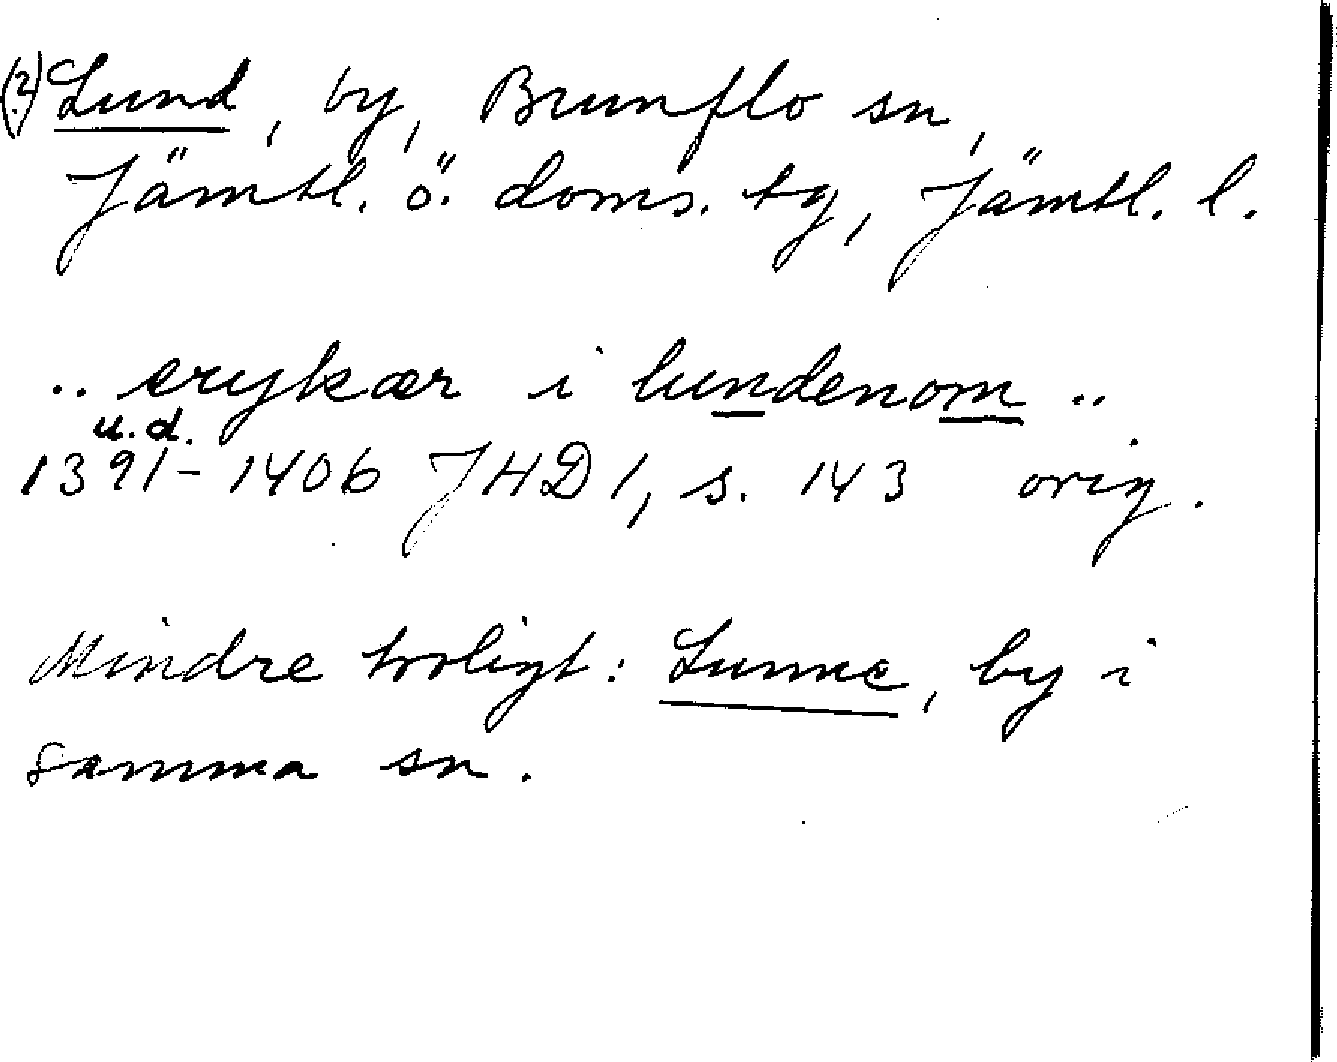 (?) Lund, by, Brunflo sn,
Jämtl. ö. doms. tg, Jämtl. l.
.. ærykær i lundenom ..
u.d.
1391-1406 JHD 1, s. 143 orig.
Mindre troligt: Lunne, by i
samma sn.